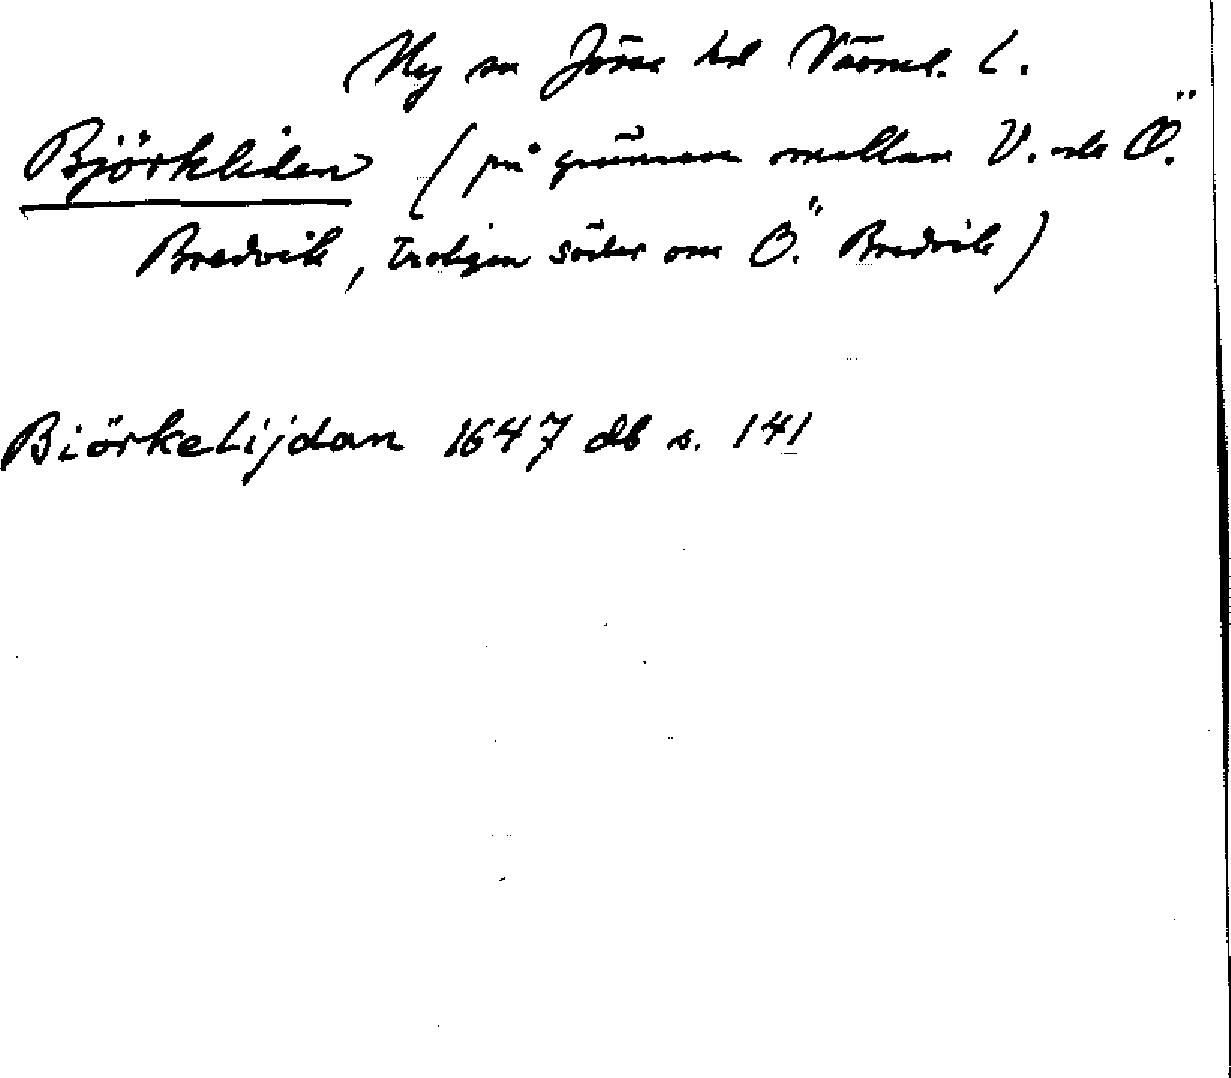 Ny sn Jösse hd Värml. l.
Björkliden (på gränsen mellan V. och Ö.
Bredvik, troligen söder om Ö. Bredvik)
Biörkelijdan 1647 db s. 141